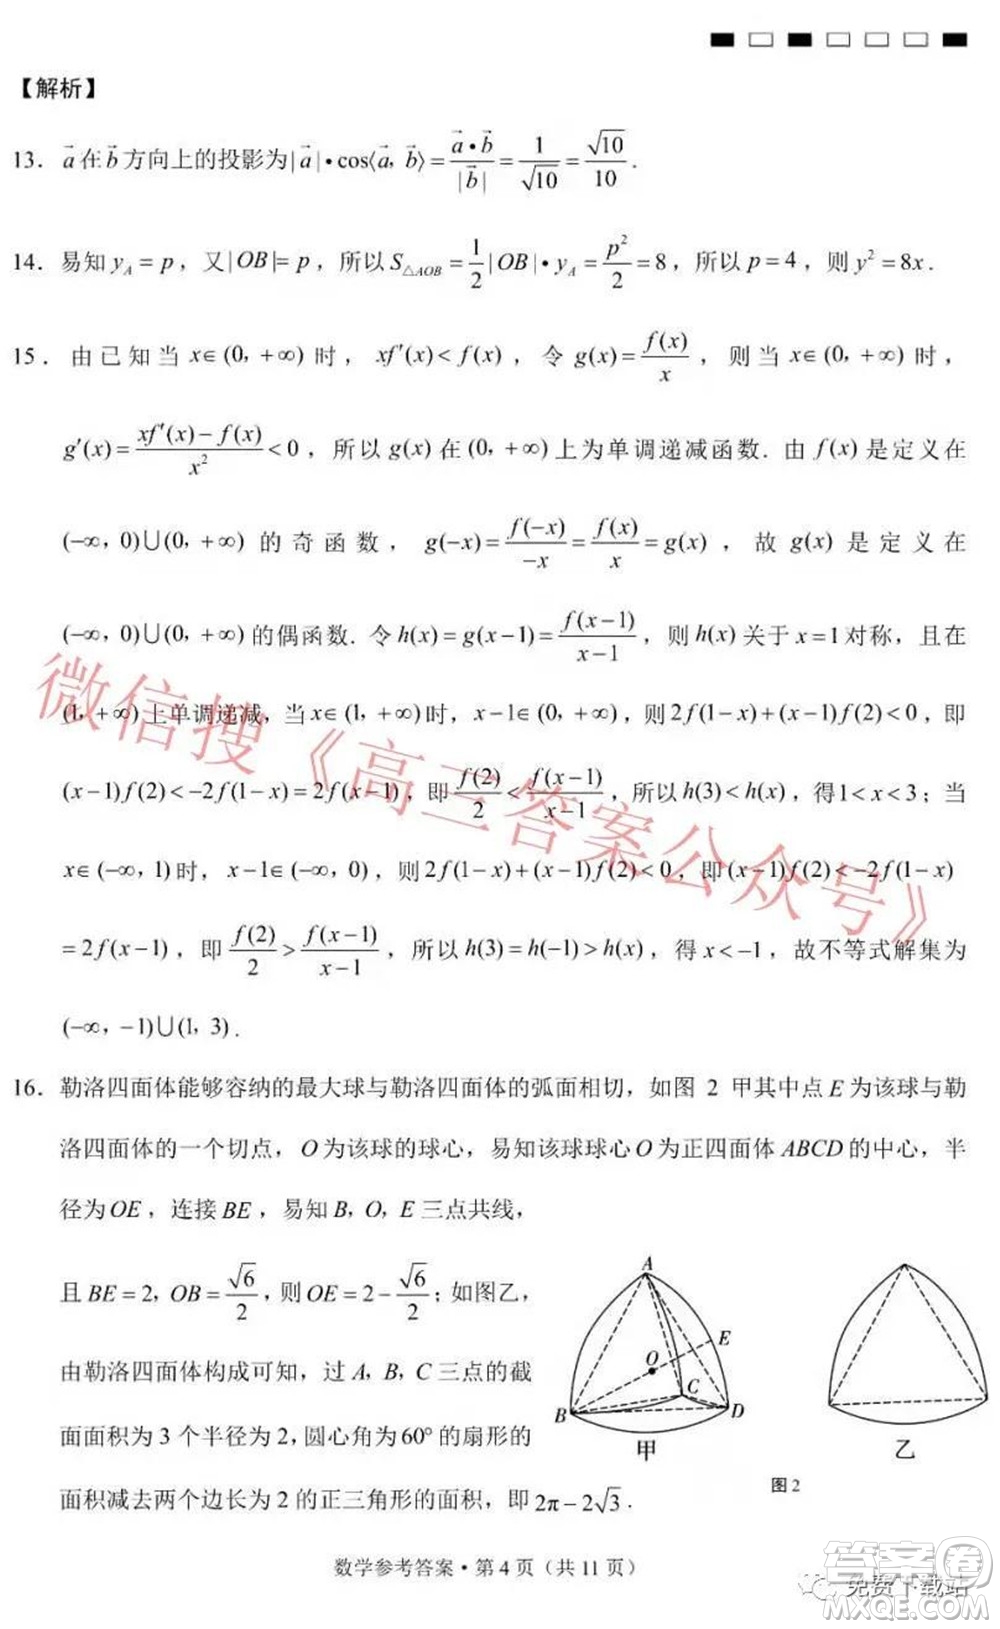 【解析】
13．$\vec{a}$在$\vec{b}$方向上的投影为$|\vec{a}|•\cos\langle\vec{a}，\vec{b}\rangle=\frac{\vec{a}•\vec{b}}{|\vec{b}|}=\frac{1}{\sqrt{10}}=\frac{\sqrt{10}}{10}$．
14．易知$y_A=p$，又$|OB|=p$，所以$S_{△AOB}=\frac{1}{2}|OB|•y_A=\frac{p^2}{2}=8$，所以$p=4$，则$y^2=8x$．
15．由已知当$x∈(0，+∞)$时，$xf'(x)<f(x)$，令$g(x)=\frac{f(x)}{x}$，则当$x∈(0，+∞)$时，
$g'(x)=\frac{xf'(x)-f(x)}{x^2}<0$，所以$g(x)$在$(0，+∞)$上为单调递减函数. 由$f(x)$是定义在
$(-∞，0)∪(0，+∞)$的奇函数，$g(-x)=\frac{f(-x)}{-x}=\frac{f(x)}{x}=g(x)$，故$g(x)$是定义在
$(-∞，0)∪(0，+∞)$的偶函数. 令$h(x)=g(x-1)=\frac{f(x-1)}{x-1}$，则$h(x)$关于$x=1$对称，且在
$(1，+∞)$上单调递减，当$x∈(1，+∞)$时，$x-1∈(0，+∞)$，则$2f(1-x)+(x-1)f(2)<0$，即
$(x-1)f(2)<-2f(1-x)=2f(x-1)$，即$\frac{f(2)}{2}<\frac{f(x-1)}{x-1}$，所以$h(3)<h(x)$，得$1<x<3$；当
$x∈(-∞，1)$时，$x-1∈(-∞，0)$，则$2f(1-x)+(x-1)f(2)<0$，即$(x-1)f(2)<-2f(1-x)$
$=2f(x-1)$，即$\frac{f(2)}{2}>\frac{f(x-1)}{x-1}$，所以$h(3)=h(-1)>h(x)$，得$x<-1$，故不等式解集为
$(-∞，-1)∪(1，3)$．
16．勒洛四面体能够容纳的最大球与勒洛四面体的弧面相切，如图 2 甲其中点E为该球与勒
洛四面体的一个切点，O为该球的球心，易知该球球心O为正四面体ABCD的中心，半
径为OE，连接BE，易知B，O，E三点共线，
且$BE=2，OB=\frac{\sqrt{6}}{2}$，则$OE=2-\frac{\sqrt{6}}{2}$；如图乙，
由勒洛四面体构成可知，过A，B，C三点的截
面面积为 3 个半径为 2，圆心角为60°的扇形的
面积减去两个边长为 2 的正三角形的面积，即$2π-2\sqrt{3}$．
A
E
O
C
B
D
甲
乙
图 2
微信搜《高三答案公众号》
数学参考答案·第 4 页（共 11 页）
免费下载站
答案圈
MXQE.COM